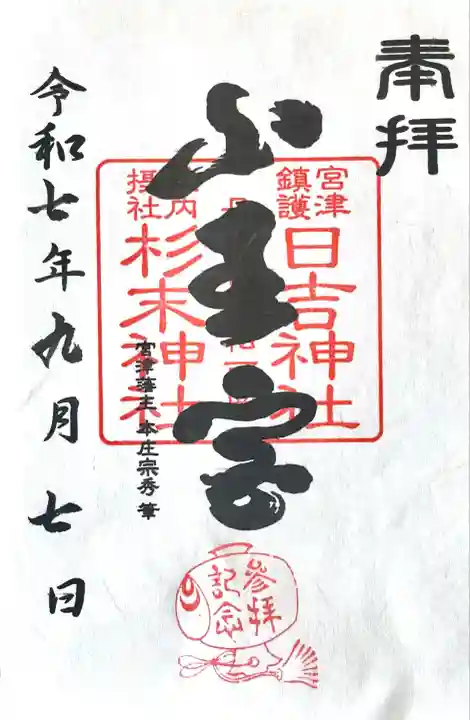 奉拝
山王宮
宮津
鎮護
日吉神社
内
摂社
杉末神社
宮津藩主 本庄宗秀 筆
令和七年九月七日
參拝
記念